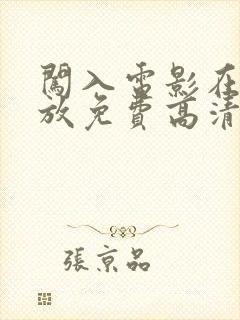 闖入雷影在
放免費高清
張京品